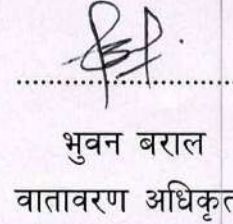 भुवन बराल
वातावरण अधिकृत